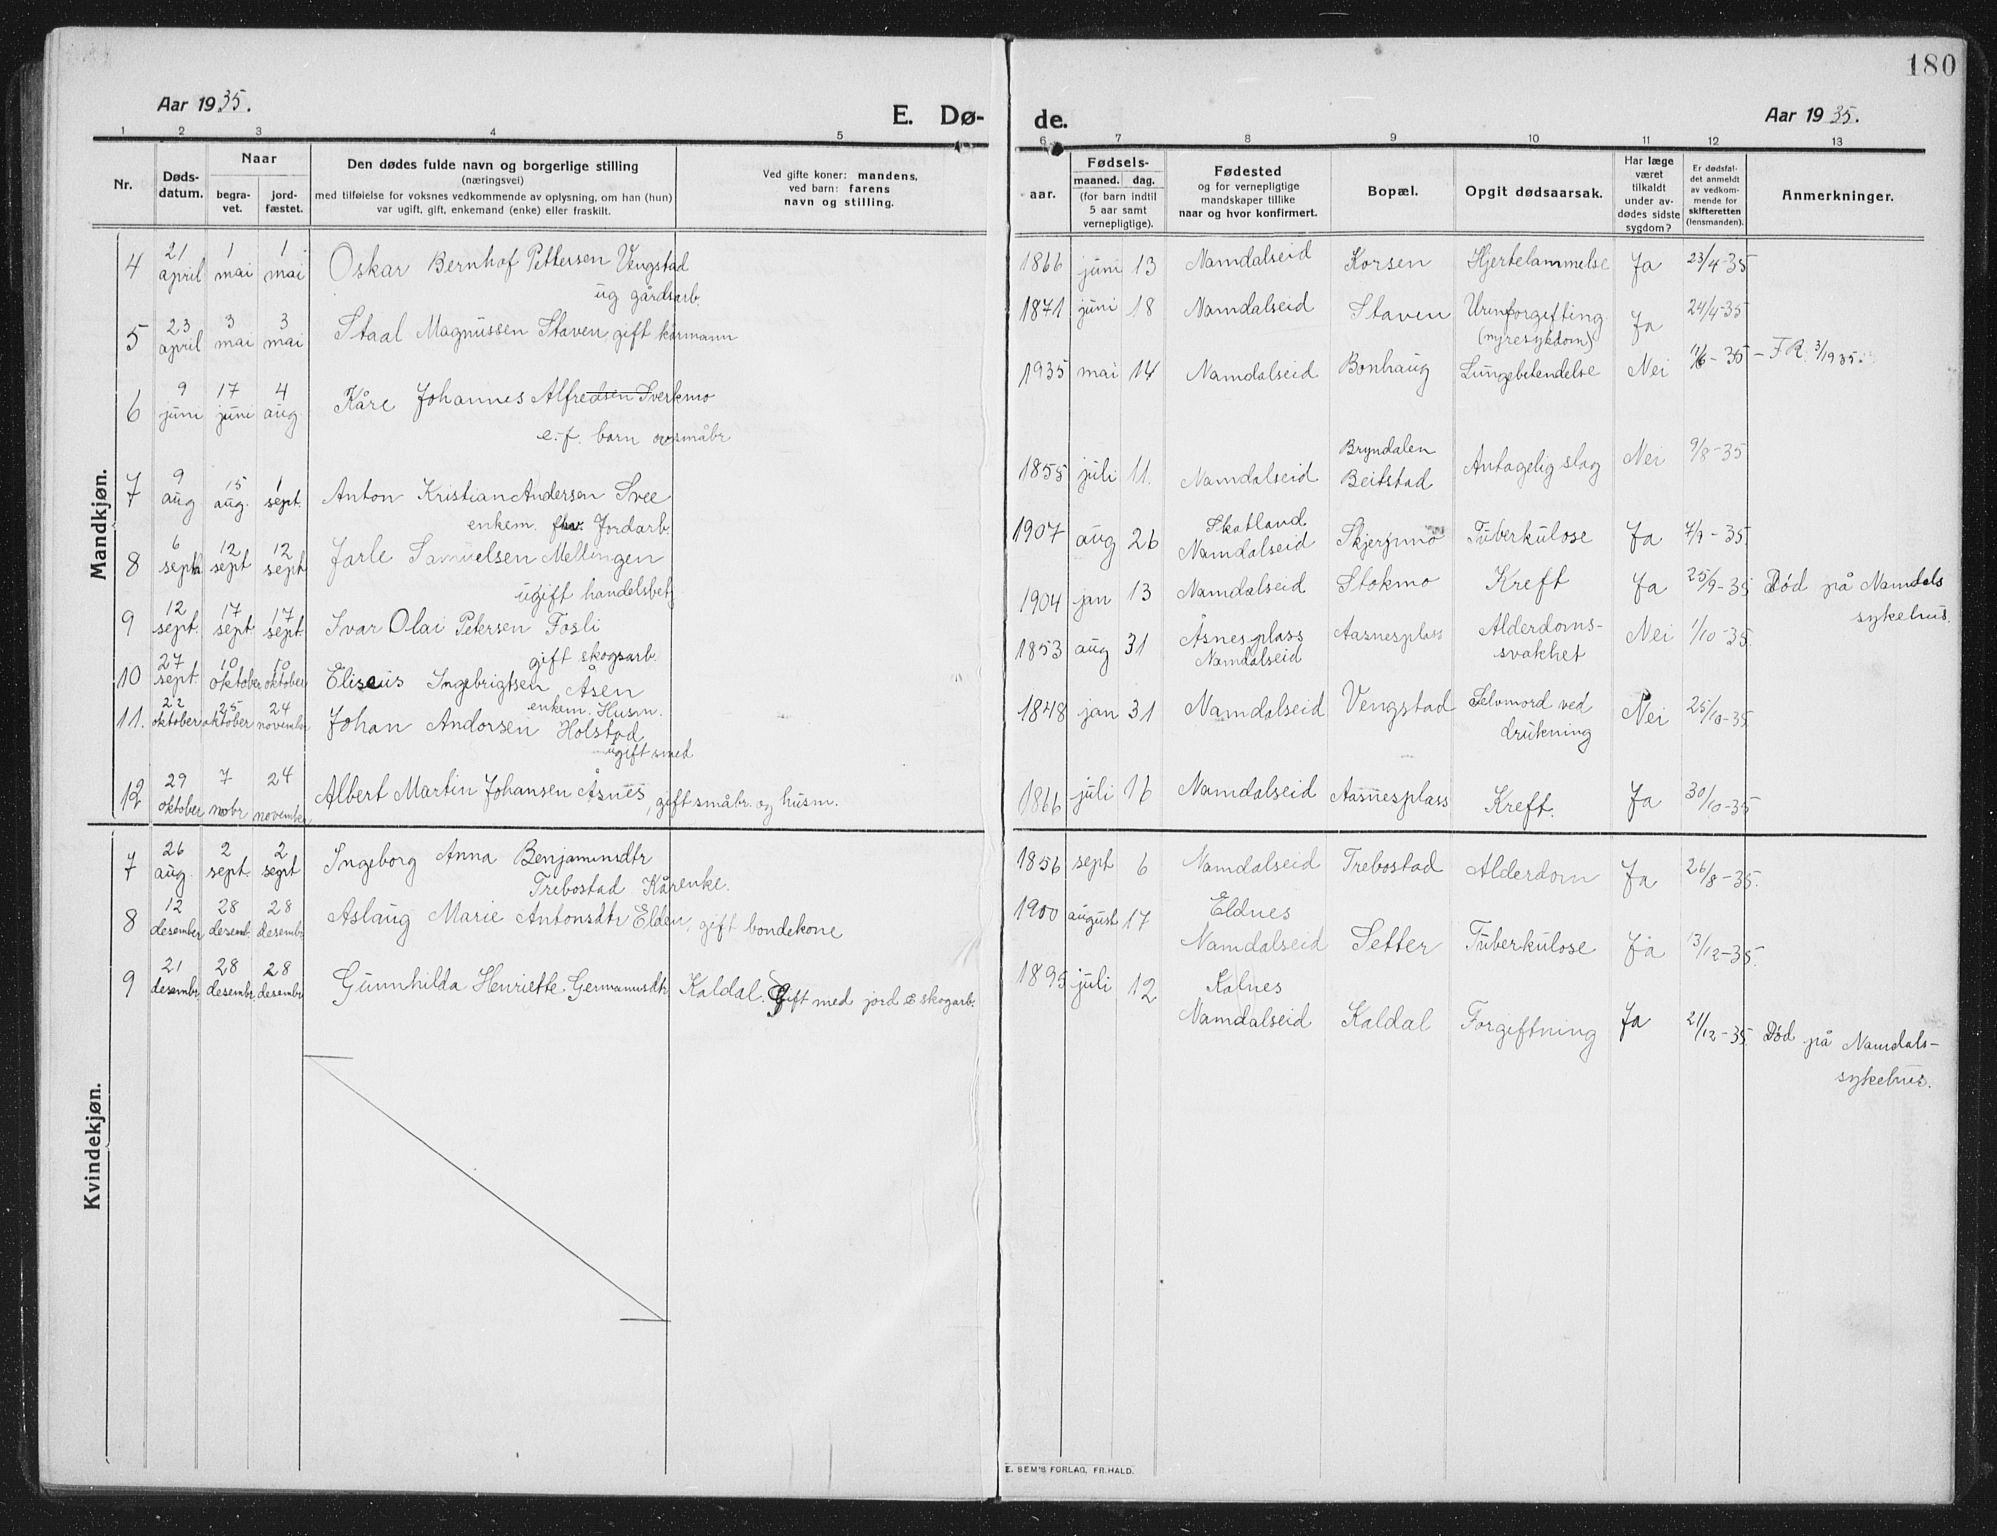 180
Aar 1935.
E. Dø-
de.
Aar 1935.
1 2 3 4 5
6 7 8 9 10 11 12 13
Nr.
Døds-
datum.
Naar
begra-
vet.
jord-
fæstet.
Den dødes fulde navn og borgerlige stilling
(næringsvei)
med tilføielse for voksnes vedkommende av oplysning, om han (hun)
var ugift, gift, enkemand (enke) eller fraskilt.
Ved gifte koner: mandens,
ved barn: farens
navn og stilling.
aar.
Fødsels-
maaned. dag.
(for barn indtil
5 aar samt
vernepligtige).
Fødested
og for vernepligtige
mandskaper tillike
naar og hvor konfirmert.
Bopæl.
Opgit dødsaarsak.
Har læge
været
tilkaldt
under av-
dødes sidste
sygdom?
Er dødsfal-
det anmeldt
av vedkom-
mende for
skifteretten
(lensmanden).
Anmerkninger.
Mandkjøn.
4 21 april 1 mai 1 mai Oskar Bernhof Pettersen Vengstad
ug gårdsarb.
1866 juni 13 Namdalseid Korsen Hjertelammelse Ja 23/4-35
5 23 april 3 mai 3 mai Staal Magnussen Staven gift kårmann
1871 juni 18 Namdalseid Staven Urinforgifting
(nyresykdom) Ja 24/4-35
6 9 juni 17 juni 4 aug Kåre Johannes Alfredsen Sverkmo
e.f. barn av småbr
1935 mai 14 Namdalseid Bonhaug Lungebetendelse Nei 11/6-35 - FR. 3/1935.
7 9 aug 15 aug. 1 sept. Anton Kristian Andersen Svee
enkem. fhv. Jordarb.
1855 juli 11. Namdalseid Bryndalen
Beitstad Antagelig slag Nei 9/8-35
8 6 sept 12 sept 12 sept Jarle Samuelsen Mellingen
ugift handelsbetj
1907 aug 26 Skatland
Namdalseid Skjerpmo Tuberkulose Ja 7/9-35.
9 12 sept. 17 sept 17 sept. Ivar Olai Petersen Fosli
gift skogsarb.
1904 jan 13 Namdalseid Stokmo Kreft Ja 25/9-35 Død på Namdals
sykehus.
10 27 sept. 10 oktober 10 oktober Eliseus Ingebrigtsen Åsen
enkem. Husm.
1853 aug 31 Åsnesplass
Namdalseid Aasnesplass Alderdoms-
svakhet Nei 1/10-35.
11. 22 oktober 25 oktober 24 november Johan Andorsen Holstad
ugift smed
1848 jan 31 Namdalseid Vengstad Selvmord ved
drukning Nei 25/10-35
12 29 oktober 7 nobr 24 november Albert Martin Johansen Åsnes, gift småbr. og husm.
1866 juli 16 Namdalseid Aasnesplass Kreft. Ja 30/10-35
Kvindekjøn.
7 26 aug. 2 sept. 2 sept Ingeborg Anna Benjaminsdtr
Trebostad Kårenke.
1856 sept 6 Namdalseid Trebostad Alderdom Ja 26/8-35.
8 12 desember 28 desemb. 28 desembr Aslaug Marie Antonsdtr Elden, gift bondekone
1900 august 17 Eldnes
Namdalseid Setter Tuberkulose Ja 13/12-35.
9 21 desembr 28 desembr 28 desembr Gunnhilda Henriette Germanusdtr Kaldal. Gift med jord & skogarb.
1895 juli 12 Kalnes
Namdalseid Kaldal Forgiftning Ja 21/12-35. Død på Namdals-
sykehus.
E. SEM'S FORLAG, FR.HALD.